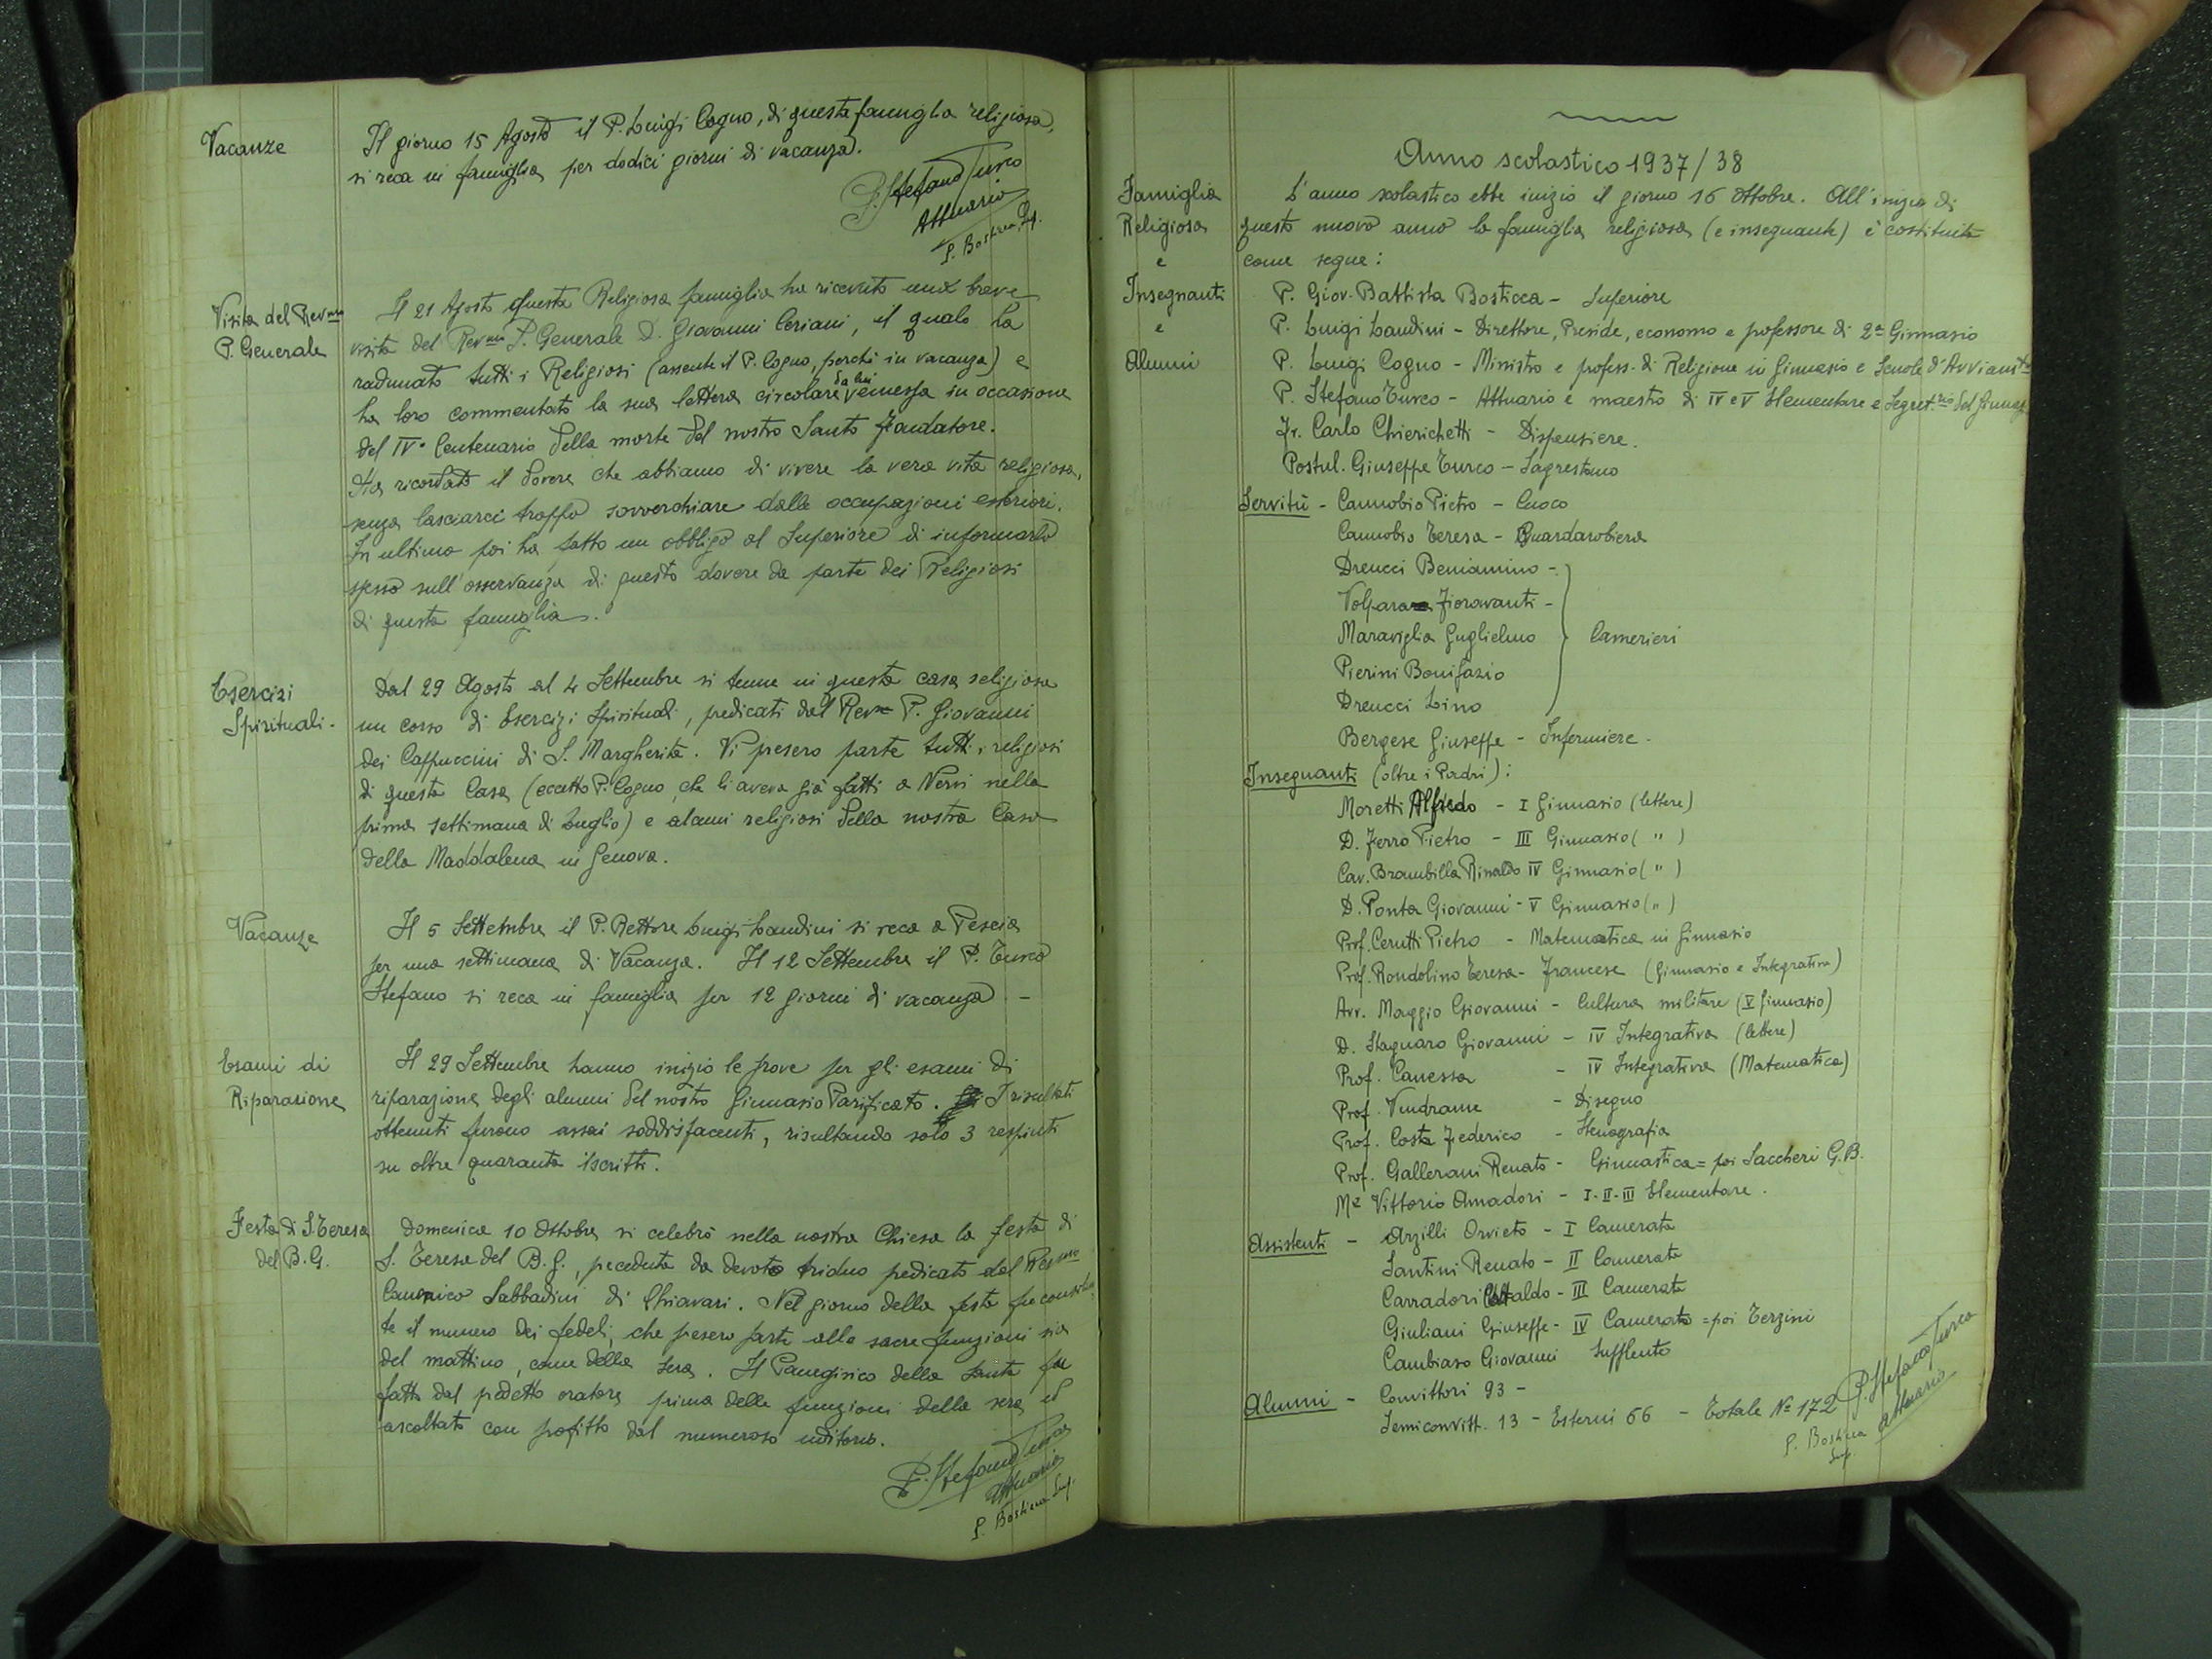 Vacanze
Il giorno 15 Agosto il P. Luigi Cogno, di questa famiglia religiosa,
si reca in famiglia per dodici giorni di vacanza.
P. Stefano Turco
Attuario
P. Bosticca Sup.
Visita del Revmo
P. Generale
Il 21 Agosto questa Religiosa famiglia ha ricevuto una breve
visita del Revmo P. Generale D. Giovanni Ceriani, il quale ha
radunato tutti i Religiosi (assente il P. Cogno, perchè in vacanza) e
da lui
ha loro commentato la sua lettera circolare emessa in occasione
del IV° Centenario della morte del nostro Santo Fondatore.
Ha ricordato il dovere che abbiamo di vivere la vera vita religiosa,
senza lasciarci troppo soverchiare dalle occupazioni esteriori.
In ultimo poi ha fatto un obbligo al Superiore di informarlo
spesso sull'osservanza di questo dovere da parte dei Religiosi
di questa famiglia.
Esercizi
Spirituali.
Dal 29 Agosto al 4 Settembre si tenne in questa casa religiosa
un corso di Esercizi Spirituali, predicati dal Rev. P. Giovanni
dei Cappuccini di S. Margherita. Vi presero parte tutti i religiosi
di questa Casa (eccetto P. Cogno, che li aveva già fatti a Nervi nella
prima settimana di Luglio) e alcuni religiosi della nostra Casa
della Maddalena in Genova.
Vacanze
Il 5 Settembre il P. Rettore Luigi Landini si reca a Pescia
per una settimana di Vacanza. Il 12 Settembre il P. Turco
Stefano si reca in famiglia per 12 giorni di vacanza -
Esami di
Riparazione
Il 29 Settembre hanno inizio le prove per gli esami di
riparazione degli alunni del nostro Ginnasio Parificato. I risultati
ottenuti furono assai soddisfacenti, risultando solo 3 respinti
su oltre quaranta iscritti.
Festa di S. Teresa
del B.G.
Domenica 10 Ottobre si celebrò nella nostra Chiesa la festa di
S. Teresa del B.G., preceduta da devoto triduo predicato dal Revmo
Canonico Sabbadini di Chiavari. Nel giorno della festa fu
te il numero dei fedeli, che presero parte alle sacre funzioni sia
del mattino, come della sera. Il Panegirico della Santa fu
fatto dal predetto oratore prima delle funzioni della sera ed
ascoltato con profitto dal numeroso uditorio.
P. Stefano Turco
Attuario
P. Bosticca Sup.
Anno scolastico 1937/38
Famiglia
Religiosa
e
Insegnanti
e
Alunni
L'anno scolastico ebbe inizio il giorno 16 Ottobre. All'inizio di
questo nuovo anno la famiglia religiosa (e insegnante) è costituita
come segue:
P. Giov. Battista Bosticca - Superiore
P. Luigi Landini - Direttore, Preside, economo e professore di 2ª Ginnasio
P. Luigi Cogno - Ministro e profess. di Religione in Ginnasio e Scuole d'Avviamto
P. Stefano Turco - Attuario e maestro di IV e V Elementare e Segret.rio del Ginnas.
Fr. Carlo Chierichetti - Dispensiere.
Postul. Giuseppe Turco - Sagrestano
Servitù - Cannobio Pietro - Cuoco
Cannobio Teresa - Guardarobiera
Dreucci Beniamino -
Volpara Fioravanti -
Maraviglia Guglielmo
Camerieri
Pierini Bonifazio
Dreucci Lino
Bergese Giuseppe - Infermiere.
Insegnanti (oltre i Padri):
Moretti Alfredo - I Ginnasio (lettere)
D. Ferro Pietro - III Ginnasio ( " )
Cav. Brambilla Rinaldo IV Ginnasio ( " )
D. Ponta Giovanni - V Ginnasio ( " )
Prof. Cerutti Pietro - Matematica in Ginnasio
Prof. Rondolino Teresa - Francese (Ginnasio e Integrativa)
Avv. Maggio Giovanni - Cultura militare (V Ginnasio)
D. Stagnaro Giovanni - IV Integrativa (lettere)
Prof. Canessa - IV Integrativa (Matematica)
Prof. Vendrame - Disegno
Prof. Costa Federico - Stenografia
Prof. Gallerani Renato - Ginnastica = poi Saccheri G.B.
Mº Vittorio Amadori - I-II-III Elementare.
Assistenti - Arzilli Orvieto - I Camerata
Santini Renato - II Camerata
Carradori Cataldo - III Camerata
Giuliani Giuseppe - IV Camerata = poi Terzini
Cambiaso Giovanni Supplente
Alunni - Convittori 93 -
Semiconvitt. 13 - Esterni 66 - Totale Nº 172
P. Stefano Turco
Attuario
P. Bosticca
Sup.